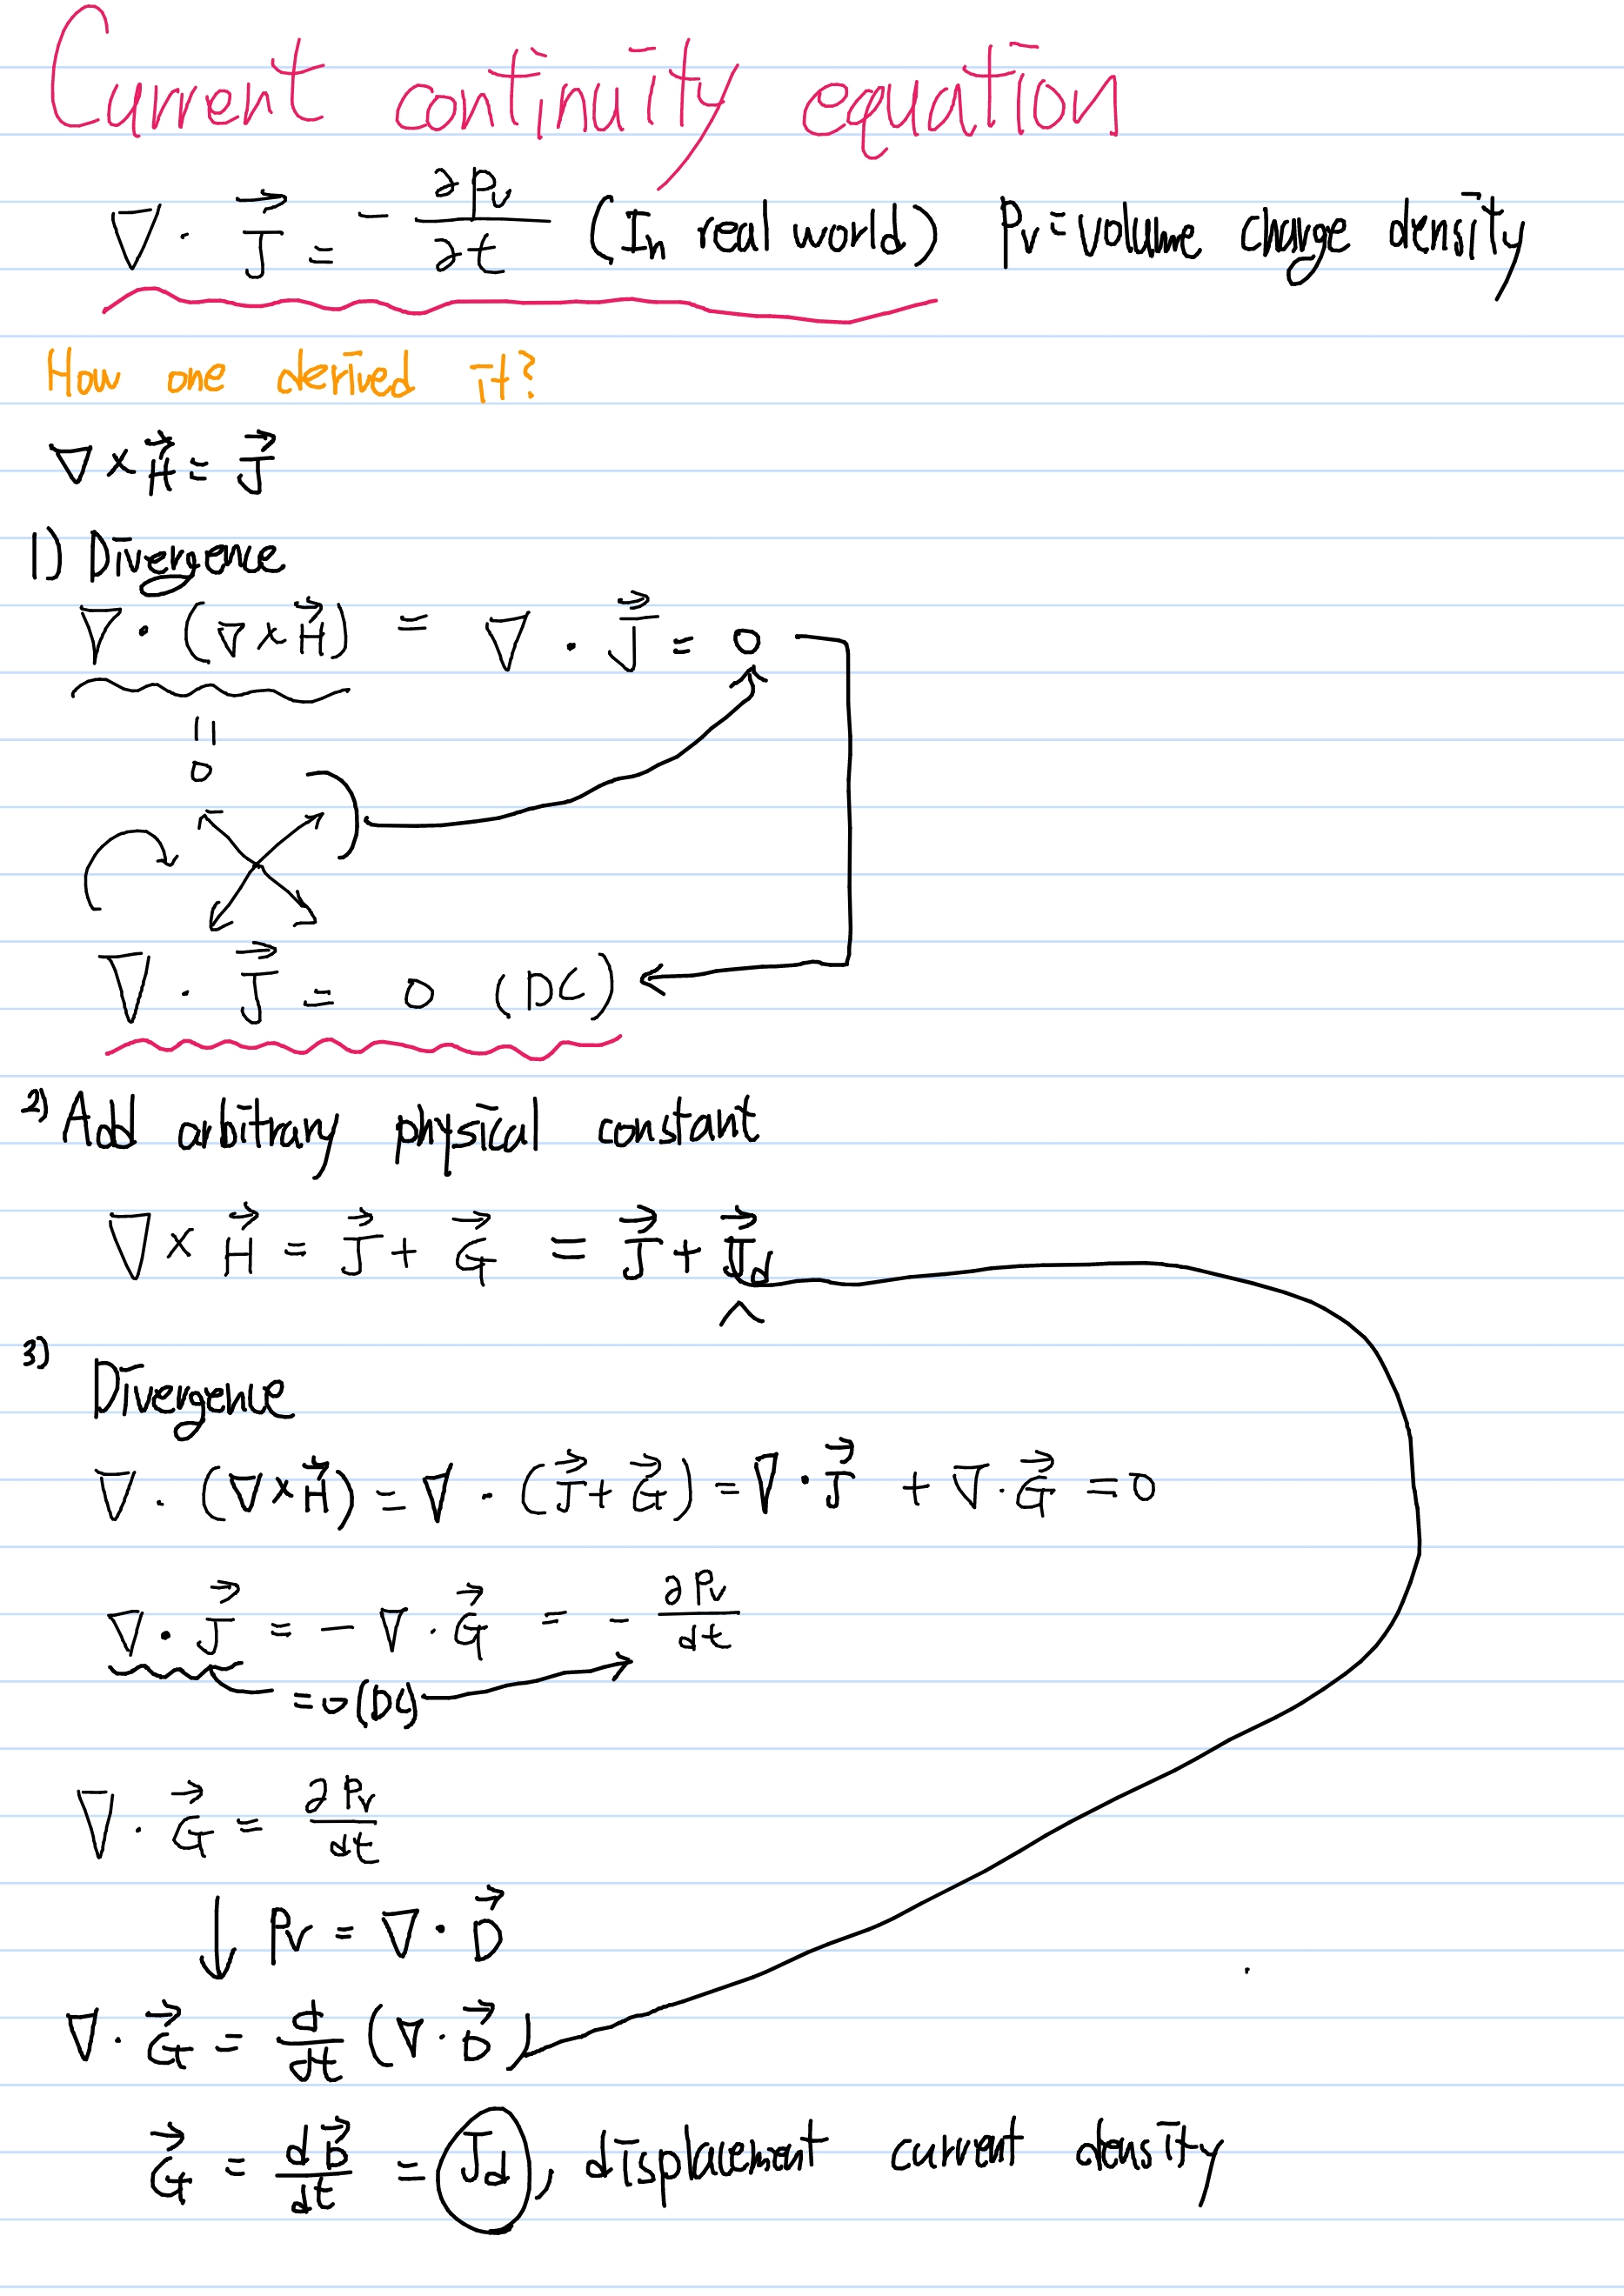 Current continuity equation
∇ · J⃗ = - ∂ρv/∂t (In real world) ρv = volume charge density
How one derived it?
∇ × H⃗ = J⃗
1) Divergence
∇ · (∇ × H⃗) = ∇ · J⃗ = 0
=
0
∇ · J⃗ = 0 (DC)
2) Add arbitrary physical constant
∇ × H⃗ = J⃗ + G⃗ = J⃗ + J⃗d
3) Divergence
∇ · (∇ × H⃗) = ∇ · (J⃗ + G⃗) = ∇ · J⃗ + ∇ · G⃗ = 0
∇ · J⃗ = - ∇ · G⃗ = - ∂ρv/dt
= 0 (DC)
∇ · G⃗ = ∂ρv/dt
↓ ρv = ∇ · D⃗
∇ · G⃗ = d/dt (∇ · D⃗)
G⃗ = dD⃗/dt = Jd, displacement current density